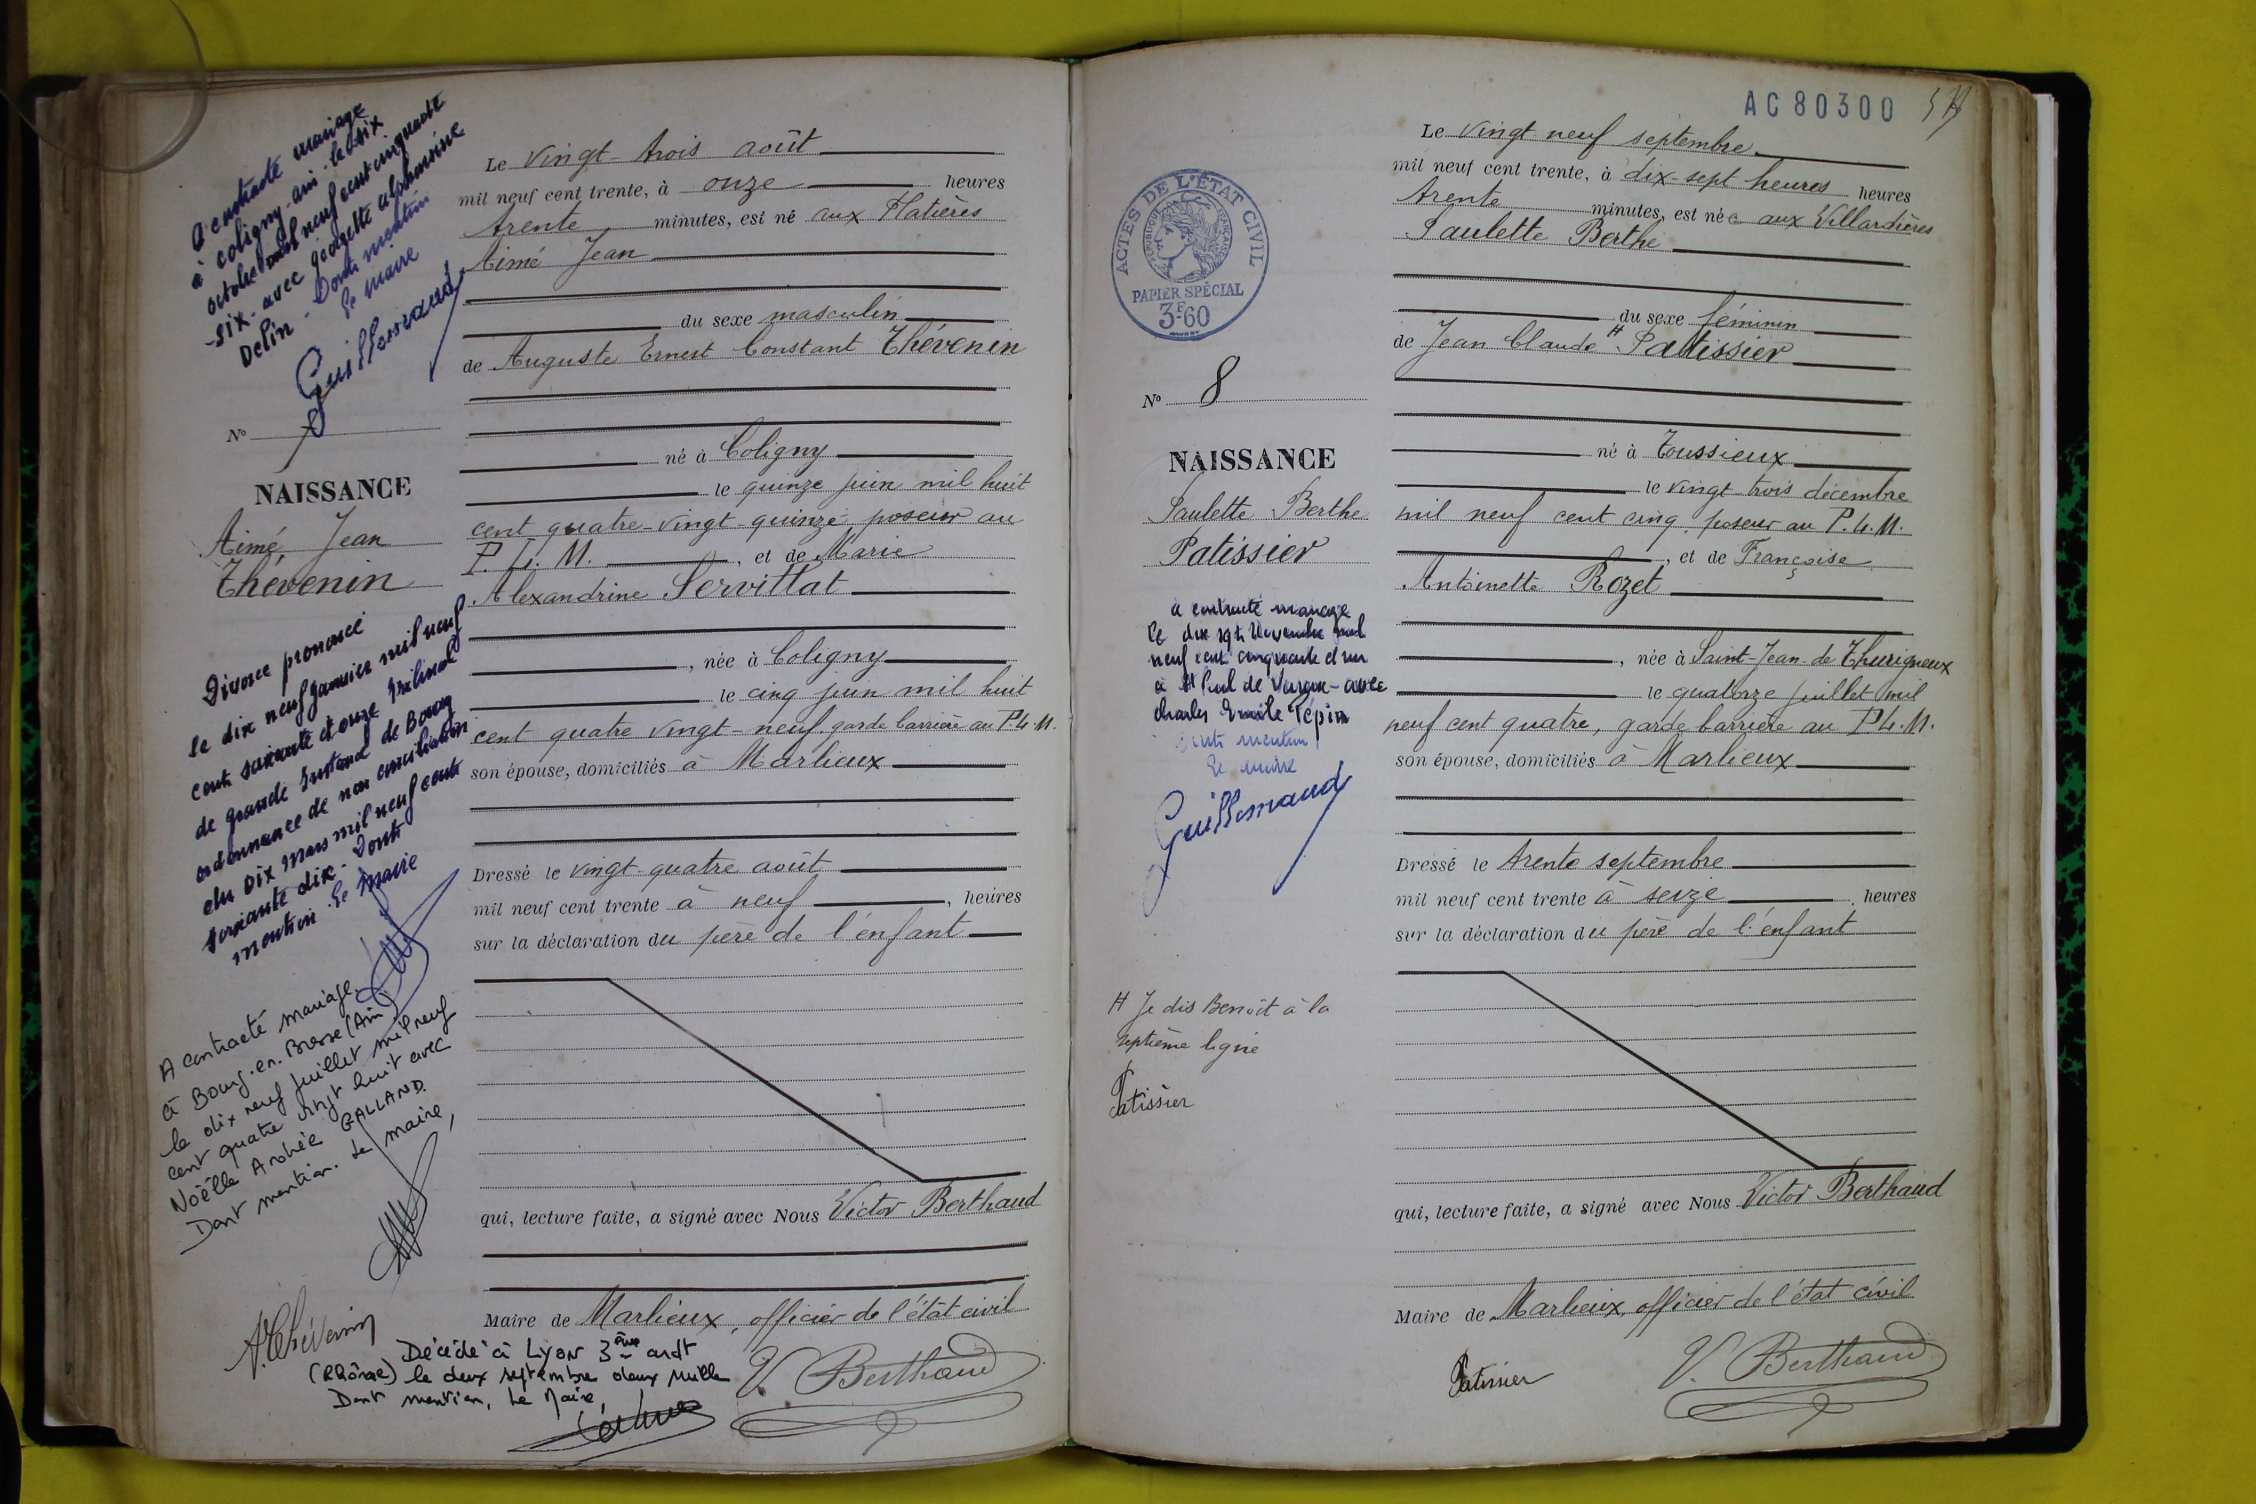 A contracté mariage
à Coligny-ain-le six
octobre mil neuf cent cinquante
-six- avec Georgette alphonsine
Delin - Dont mention
Le Maire
Guillemaud
Nº
NAISSANCE
Aimé, Jean
Thévenin
Divorce prononcé
le dix neuf janvier mil neuf
cent soixante et onze Tribunal
de grande Instance de Bourg
ordonnance de non conciliation
du DIX mars mil neuf cent
soixante dix. Dont
mention. Le Maire
A contracté mariage
à Bourg-en-Bresse (Ain)
le dix neuf juillet mil neuf
cent quatre vingt huit avec
Noëlle Andrée GALLAND.
Dont mention. Le maire,
A. Thévenin
Décédé à Lyon 3ème ardt
(Rhône) le deux septembre deux mille
Dont mention, Le Maire,
Le vingt-trois août
mil neuf cent trente, à onze heures
trente minutes, est né aux Platières
Aimé Jean
du sexe masculin
de Auguste Ernest Constant Thévenin
né à Coligny
le quinze juin mil huit
cent quatre-vingt-quinze, poseur au
P. L. M. , et de Marie
Alexandrine Servillat
, née à Coligny
le cinq juin mil huit
cent quatre vingt-neuf, garde barrière au P.L.M.
son épouse, domiciliés à Marlieux
Dressé le vingt-quatre août
mil neuf cent trente à neuf , heures
sur la déclaration du père de l'enfant
qui, lecture faite, a signé avec Nous Victor Berthaud
Maire de Marlieux, officier de l'état civil
V. Berthaud
AC 80300
ACTES DE L'ÉTAT CIVIL
RÉPUBLIQUE FRANÇAISE
PAPIER SPÉCIAL
3F60
Nº 8
NAISSANCE
Paulette Berthe
Patissier
a contracté mariage
le dix sept Novembre mil
neuf cent cinquante et un
à St Paul de Varax - avec
Charles Emile Pépin
Dont mention
Le Maire
Guillemaud
H Je dis Benoît à la
septième ligne
Patissier
Le vingt neuf septembre
mil neuf cent trente, à dix-sept heures heures
trente minutes, est née aux Villardières
Paulette Berthe
du sexe féminin
de Jean Claude H Patissier
né à Toussieux
le vingt trois décembre
mil neuf cent cinq, poseur au P.L.M.
, et de Françoise
Antoinette Rozet
, née à Saint-Jean-de Thurigneux
le quatorze juillet mil
neuf cent quatre, garde barrière au P.L.M.
son épouse, domiciliés à Marlieux
Dressé le trente septembre
mil neuf cent trente à seize heures
sur la déclaration du père de l'enfant
qui, lecture faite, a signé avec Nous Victor Berthaud
Maire de Marlieux, officier de l'état civil
Patissier
V. Berthaud